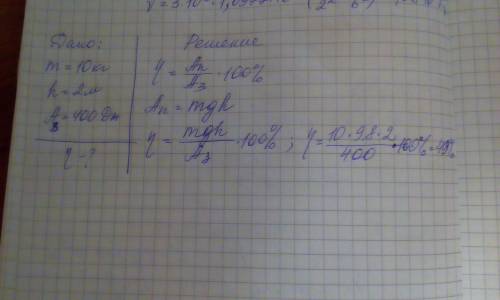 Дано:
m = 10 кг
h = 2 м
Aз = 400 Дж
η - ?
Решение
η = Aп / Aз · 100%
Aп = mgh
η = mgh / Aз · 100% ; η = 10 · 9,8 · 2 / 400 · 100% = 49%